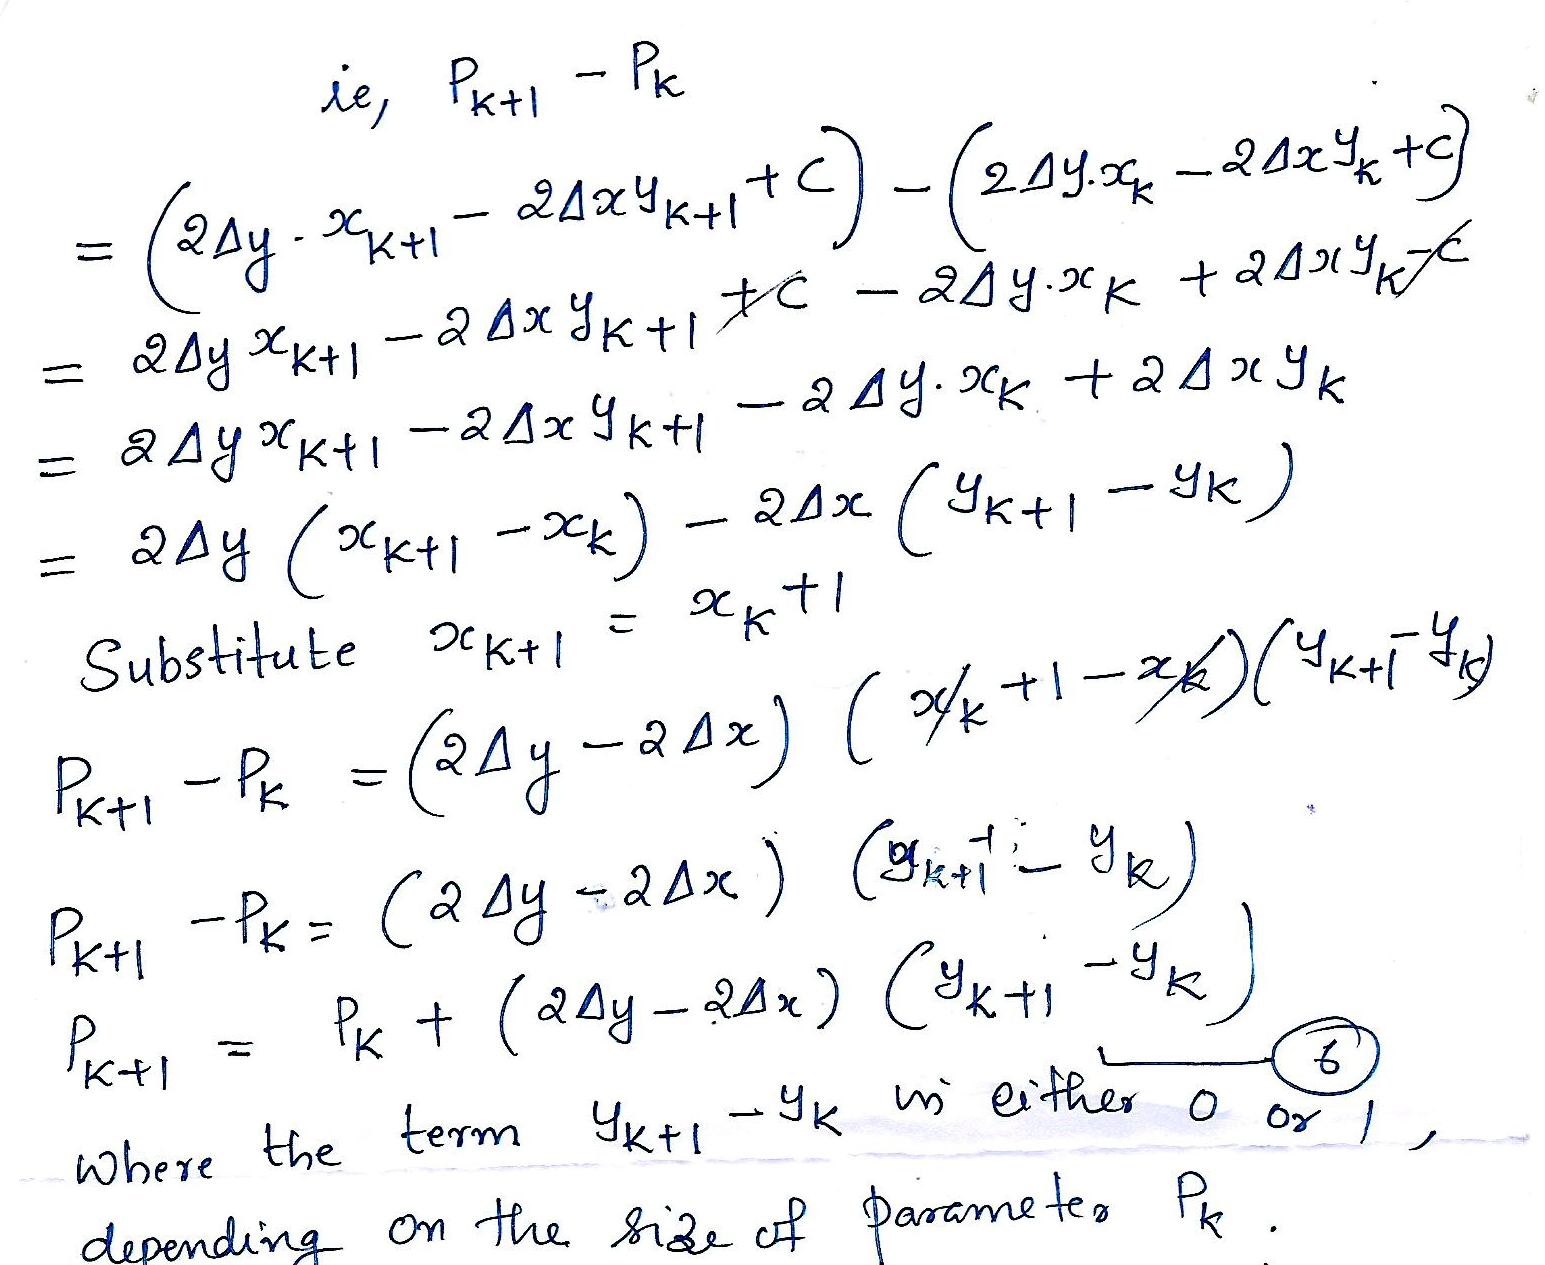 ie, P_{k+1} - P_k
= (2Δy · x_{k+1} - 2Δx y_{k+1} + c) - (2Δy · x_k - 2Δx y_k + c)
= 2Δy x_{k+1} - 2Δx y_{k+1} + c - 2Δy · x_k + 2Δx y_k - c
= 2Δy x_{k+1} - 2Δx y_{k+1} - 2Δy · x_k + 2Δx y_k
= 2Δy (x_{k+1} - x_k) - 2Δx (y_{k+1} - y_k)
Substitute x_{k+1} = x_k + 1
P_{k+1} - P_k = (2Δy - 2Δx) (x_k + 1 - x_k) (y_{k+1} - y_k)
P_{k+1} - P_k = (2Δy - 2Δx) (y_{k+1} - y_k)
P_{k+1} = P_k + (2Δy - 2Δx) (y_{k+1} - y_k)
6
where the term y_{k+1} - y_k is either 0 or 1,
depending on the size of parameter P_k.